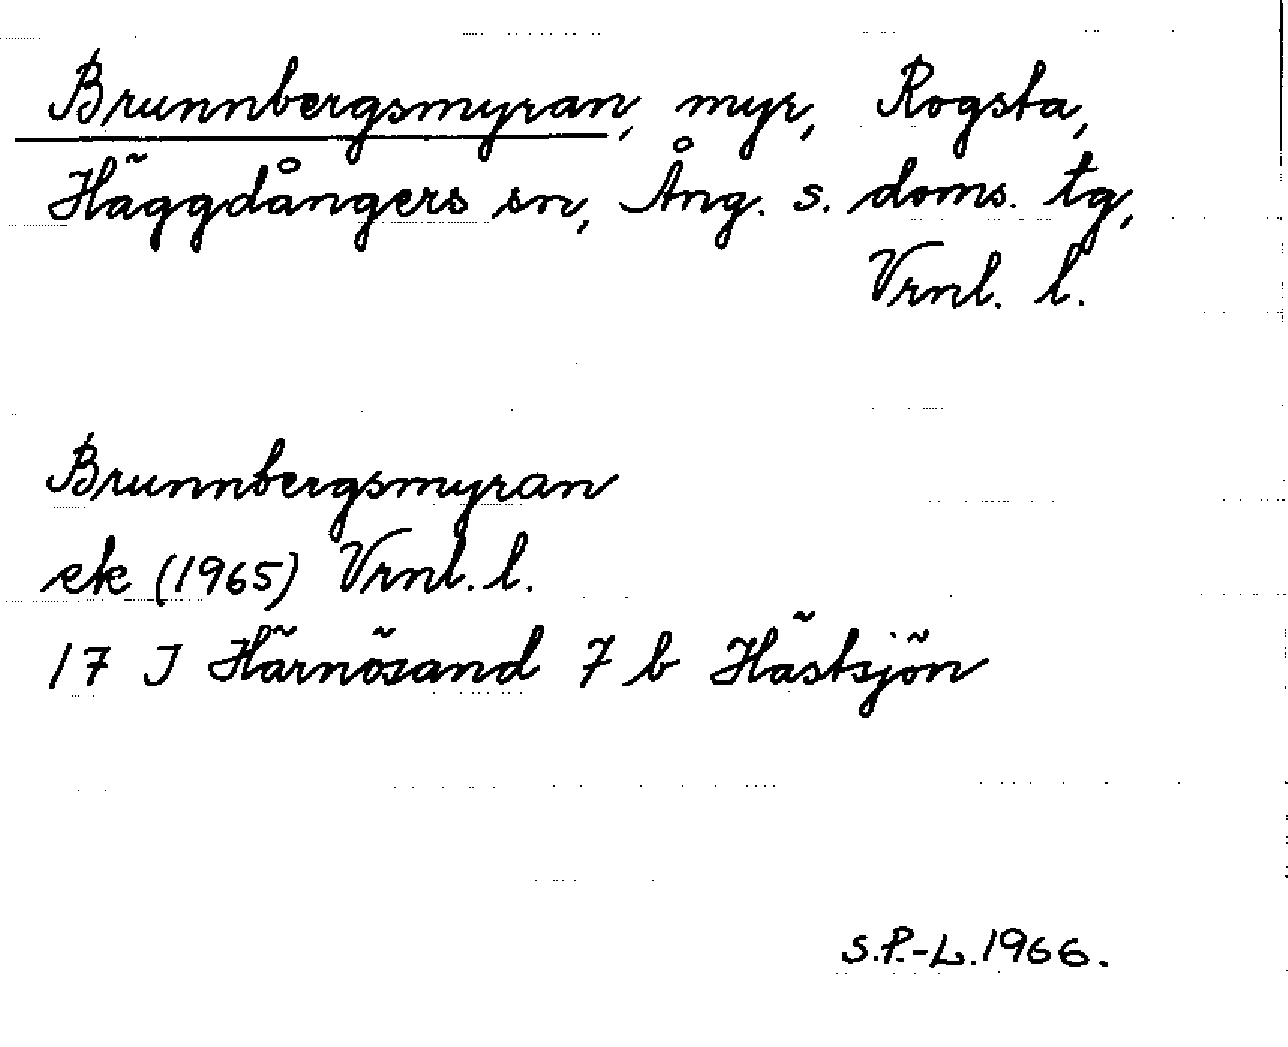 Brunnbergsmyran, myr, Rogsta,
Häggdångers sn, Ång. s. doms. tg,
Vrnl. l.
Brunnbergsmyran
ek (1965) Vrnl. l.
17 J Härnösand 7 b Hästsjön
S.P.-L. 1966.